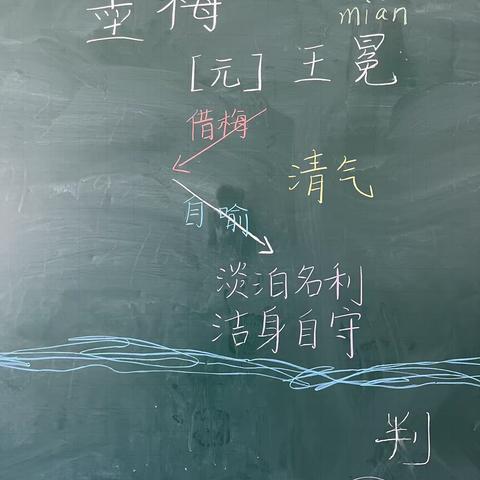 墨梅
mian
[元] 王冕
借梅
清气
自喻
淡泊名利
洁身自守
判